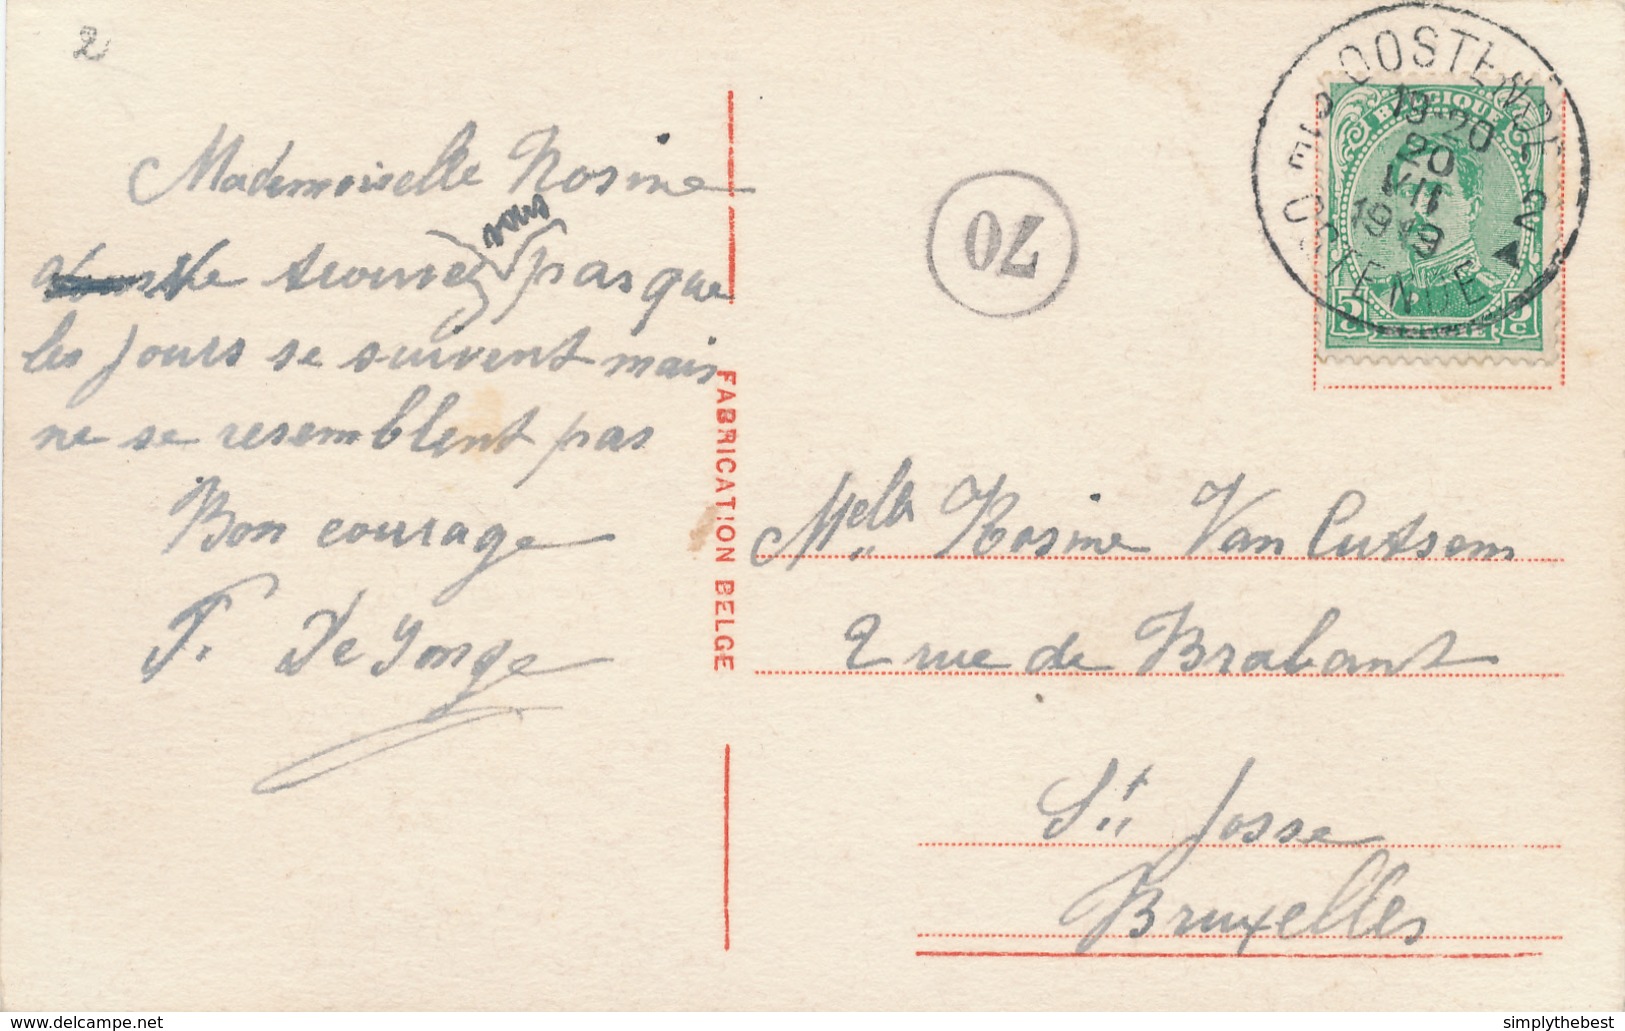 2
Mademoiselle Rosine
vous
trouvez pas que
les jours se suivent mais
ne se resemblent pas
Bon courage
F. De Yonge
FABRICATION BELGE
70
OOSTENDE 2
19-20
20
VII
1919
OSTENDE
BELGIQUE
5 c
5 c
BELGIE
Melle Rosine Van Cutsem
2 rue de Brabant
St. Josse
Bruxelles
delcampe.net
simplythebest